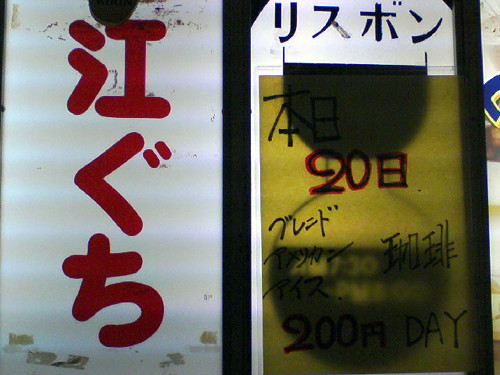 江ぐち
リスボン
本日
20日
ブレンド
アメリカン
アイス.
珈琲
200円 DAY